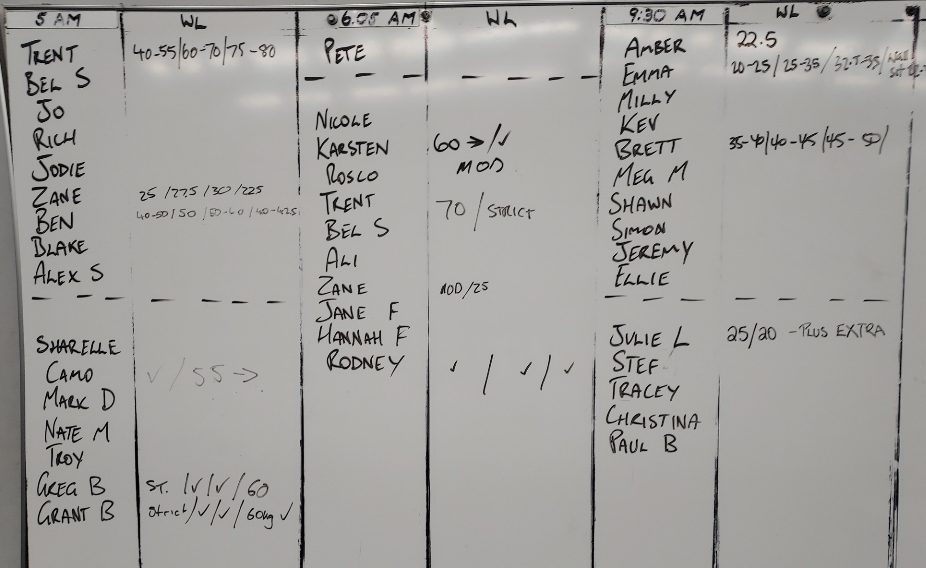 5 AM WL
TRENT 40-55/60-70/75-80
BEL S
JO
RICH
JODIE
ZANE 25 /27.5 /30 /22.5
BEN 40-50/50 /50-40 /40-42.5
BLAKE
ALEX S
SHARELLE
CAMO ✓ / 55 →
MARK D
NATE M
TROY
GREG B ST. /✓/✓/60
GRANT B Strict/✓/✓/60kg ✓
6.05 AM WL
PETE
NICOLE
KARSTEN 60 →/✓
ROSCO MOD
TRENT 70 / STRICT
BEL S
ALI
ZANE MOD/25
JANE F
HANNAH F
RODNEY ✓ / ✓ / ✓
9:30 AM WL
AMBER 22.5
EMMA 20-25 / 25-35 / 32.5-35 / Wall
MILLY
KEV
BRETT 35-40/40-45 /45-50/
MEG M
SHAWN
SIMON
JEREMY
ELLIE
JULIE L 25/20 - PLUS EXTRA
STEF
TRACEY
CHRISTINA
PAUL B